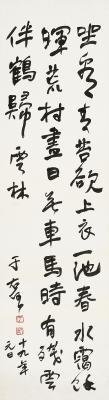 坐看青苔欲上衣一池春水靄餘
暉荒村盡日無車馬時有殘雲
伴鶴歸雲林
于右任
十九年
元日